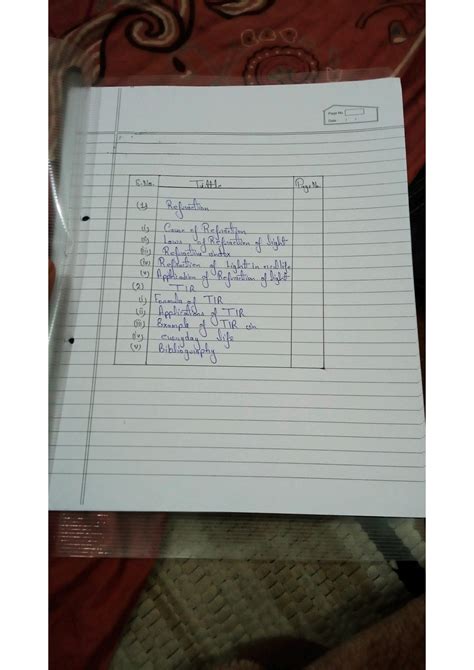 Page No.
Date
S.No. Tittle Page No.
(1) Refraction
(i) Cause of Refraction
(ii) Laws of Refraction of light
(iii) Refractive index
(iv) Refraction of Light in
(v) Application of Refraction of light
(2) TIR
(i) Formula of TIR
(ii) Applications of TIR
(iii) Example of TIR in
(iv) everyday life
(v) Bibliography